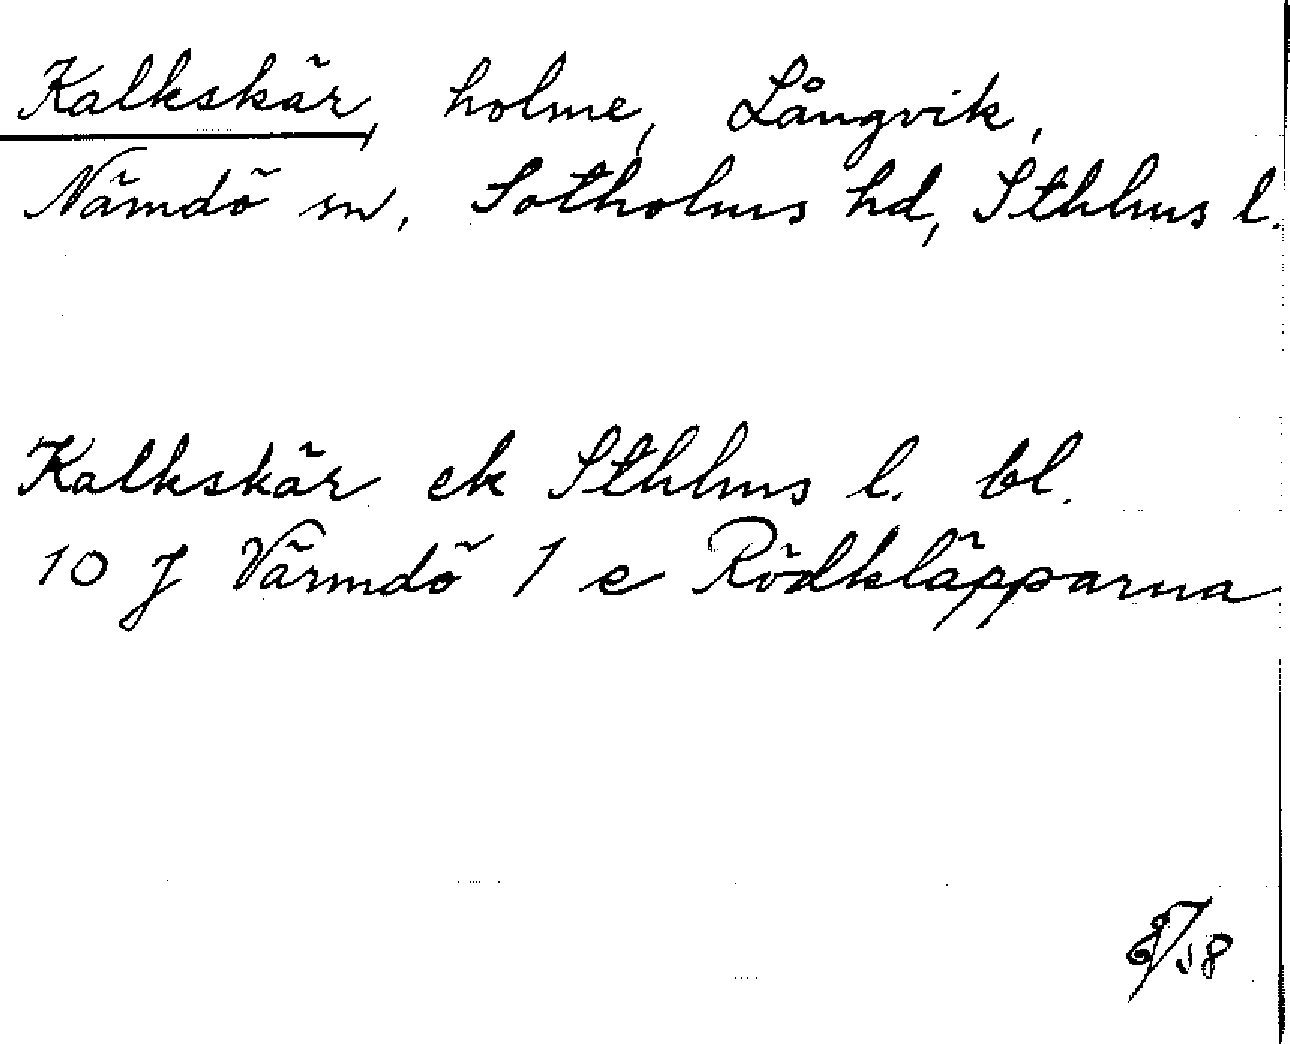 Kalkskär, holme, Långvik,
Nämdö sn, Sotholms hd, Sthlms l.
Kalkskär ek Sthlms l. bl.
10 J Värmdö 1 c Rödkläpparna